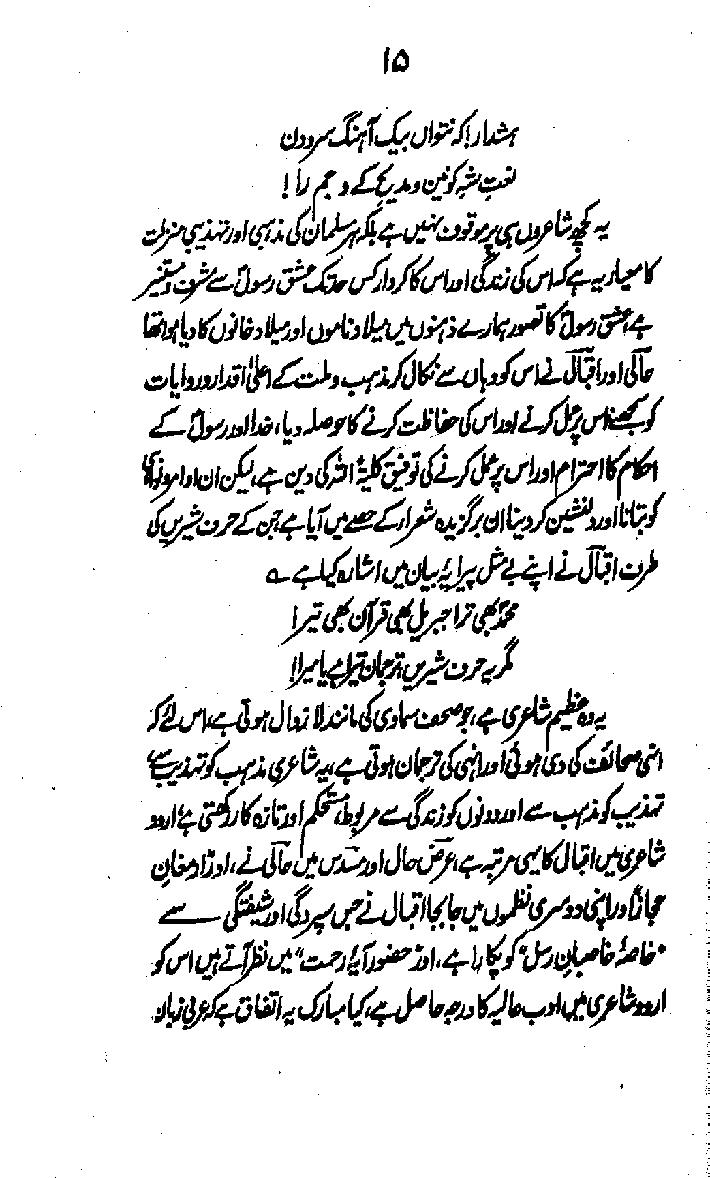 ۱۵
ہشدار! کہ نتواں بیک آہنگ سرودن
نعتِ شہِ کونین و مدیح کے و جم را!
یہ کچھ شاعروں ہی پر موقوف نہیں ہے بلکہ ہر مسلمان کی مذہبی اور تہذیبی منزلت
کا معیار یہ ہے کہ اس کی زندگی اور اس کا کردار کس حد تک عشق رسولؐ سے مشرف و مستنیر
ہے، عشق رسولؐ کا تصور ہمارے ذہنوں میں میلاد ناموں اور میلاد خانوں کا دیا ہوا تھا
حالی اور اقبال نے اس کو وہاں سے نکال کر مذہب و ملت کے اعلیٰ اقدار و روایات
کو سمجھنے اس پر عمل کرنے اور اس کی حفاظت کرنے کا حوصلہ دیا، خدا اور رسولؐ کے
احکام کا احترام اور اس پر عمل کرنے کی توفیق کلیۃً اللہ کی دین ہے، لیکن ان اوامر و نواہی
کو بتانا اور دلنشین کر دینا ان برگزیدہ شعراء کے حصے میں آیا ہے جن کے حرف شیریں کی
طرف اقبال نے اپنے بے مثل پیرایۂ بیان میں اشارہ کیا ہے ؎
محمدؐ بھی ترا جبریل بھی قرآن بھی تیرا
مگر یہ حرف شیریں ترجمان تیرا ہے یا میرا!
یہ وہ عظیم شاعری ہے، جو صحف سماوی کی مانند لازوال ہوتی ہے، اس لئے کہ
انہی صحائف کی دی ہوئی اور انہی کی ترجمان ہوتی ہے، یہ شاعری مذہب کو تہذیب سے
تہذیب کو مذہب سے اور دونوں کو زندگی سے مربوط، مستحکم اور تازہ کار رکھتی ہے، اردو
شاعری میں اقبال کا یہی مرتبہ ہے، عرض حال اور مسدس میں حالی نے، اور ارمغانِ
حجاز اور اپنی دوسری نظموں میں جا بجا اقبال نے جس سپردگی اور شیفتگی سے
"خاصۂ خاصانِ رسل" کو پکارا ہے، اور "حضور آیۂ رحمت" میں نظر آتے ہیں اس کو
اردو شاعری میں ادب عالیہ کا درجہ حاصل ہے، کیا مبارک یہ اتفاق ہے کہ عربی زبان